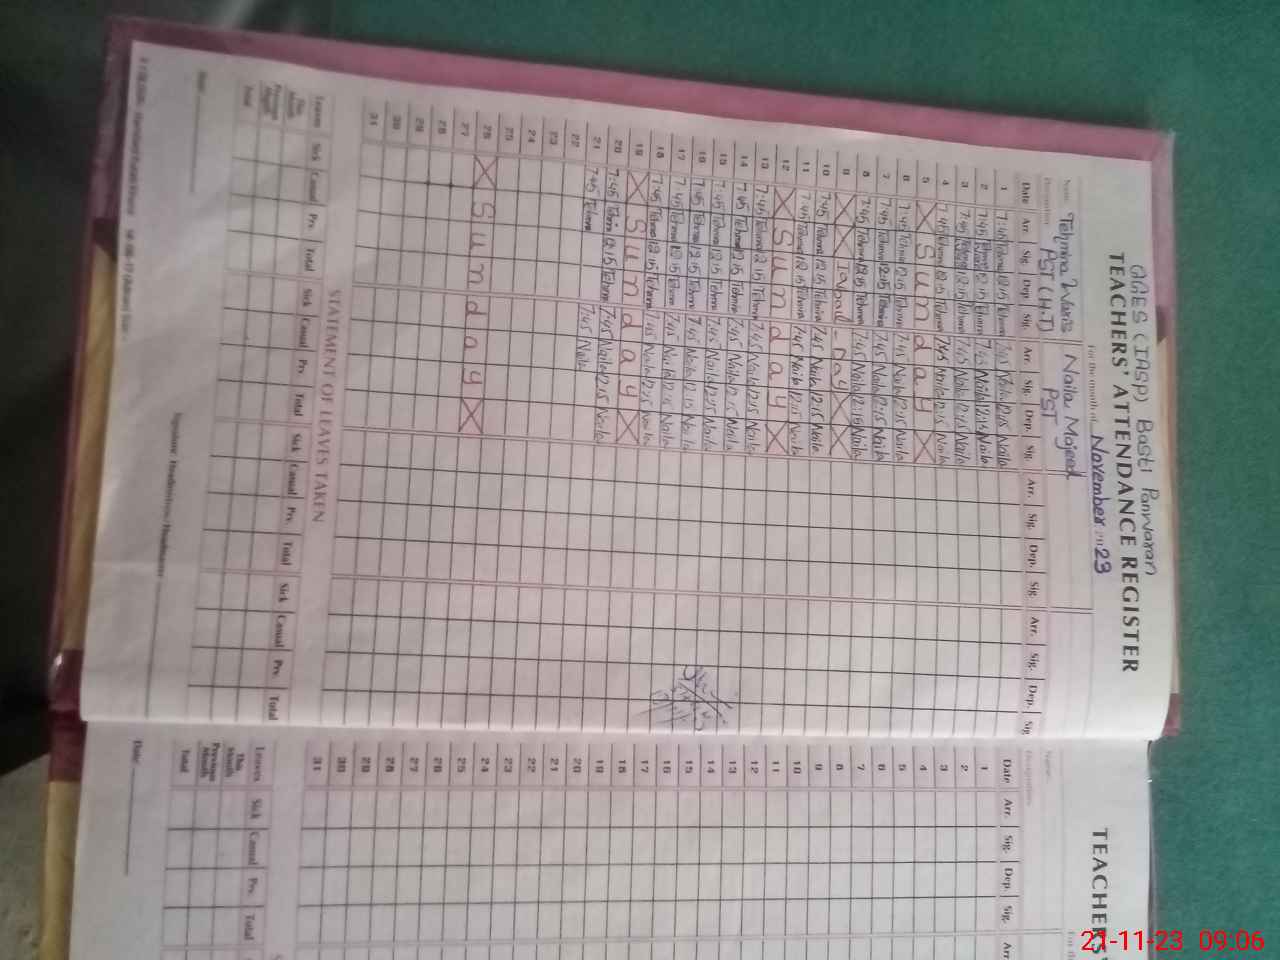 GGES (IASP) Basti Panwaran
TEACHERS' ATTENDANCE REGISTER
For the month of November 2023
Name Tehmina Waris Naila Majeed
Designation PST (H.T) PST
Date Arr. Sig. Dep. Sig. Arr. Sig. Dep. Sig. Arr. Sig. Dep. Sig. Arr. Sig. Dep. Sig.
1 7:45 Tehmina 12:15 Tehmina 7:45 Naila 12:15 Naila
2 7:45 Tehmina 12:15 Tehmina 7:45 Naila 12:15 Naila
3 7:45 Tehmina 12:15 Tehmina 7:45 Naila 12:15 Naila
4 7:45 Tehmina 12:15 Tehmina 7:45 Naila 12:15 Naila
5 Sunday
6 7:45 Tehmina 12:15 Tehmina 7:45 Naila 12:15 Naila
7 7:45 Tehmina 12:15 Tehmina 7:45 Naila 12:15 Naila
8 7:45 Tehmina 12:15 Tehmina 7:45 Naila 12:15 Naila
9 Iqbal - Day
10 7:45 Tehmina 12:15 Tehmina 7:45 Naila 12:15 Naila
11 7:45 Tehmina 12:15 Tehmina 7:45 Naila 12:15 Naila
12 Sunday
13 7:45 Tehmina 12:15 Tehmina 7:45 Naila 12:15 Naila
14 7:45 Tehmina 12:15 Tehmina 7:45 Naila 12:15 Naila
15 7:45 Tehmina 12:15 Tehmina 7:45 Naila 12:15 Naila
16 7:45 Tehmina 12:15 Tehmina 7:45 Naila 12:15 Naila
17 7:45 Tehmina 12:15 Tehmina 7:45 Naila 12:15 Naila
18 7:45 Tehmina 12:15 Tehmina 7:45 Naila 12:15 Naila
19 Sunday
20 7:45 Tehmina 12:15 Tehmina 7:45 Naila 12:15 Naila
21 7:45 Tehmina 7:45 Naila
22
23
24
25
26 Sunday
27
28
29
30
31
STATEMENT OF LEAVES TAKEN
Leaves Sick Casual Prv. Total Sick Casual Prv. Total Sick Casual Prv. Total Sick Casual Prv. Total
This Month
Previous Month
Total
Date:
Signature Headmistress/Headmaster
TEACHERS'
Name
Designation
Date Arr. Sig. Dep. Sig. Arr
1
2
3
4
5
6
7
8
9
10
11
12
13
14
15
16
17
18
19
20
21
22
23
24
25
26
27
28
29
30
31
Leaves Sick Casual Prv. Total
This Month
Previous Month
Total
Date:
21-11-23 09.06